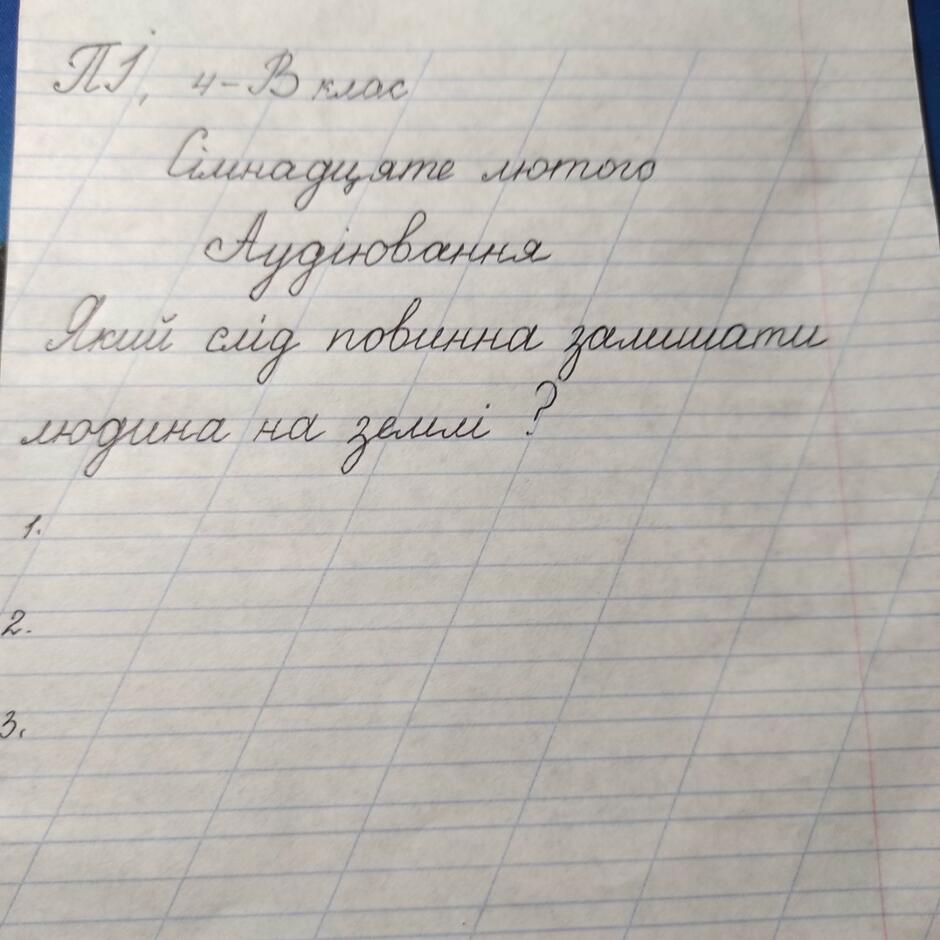 ПІ, 4-В клас
Сімнадцяте лютого
Аудіювання
Який слід повинна залишати
людина на землі ?
1.
2.
3.